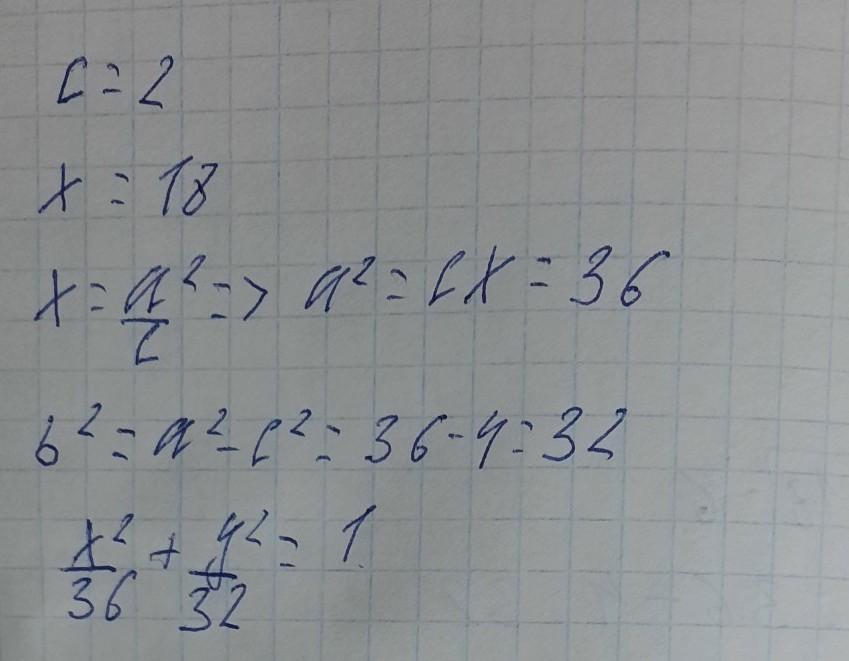 c = 2
x = 18
x = a²/c => a² = cx = 36
b² = a² - c² = 36 - 4 = 32
x²/36 + y²/32 = 1